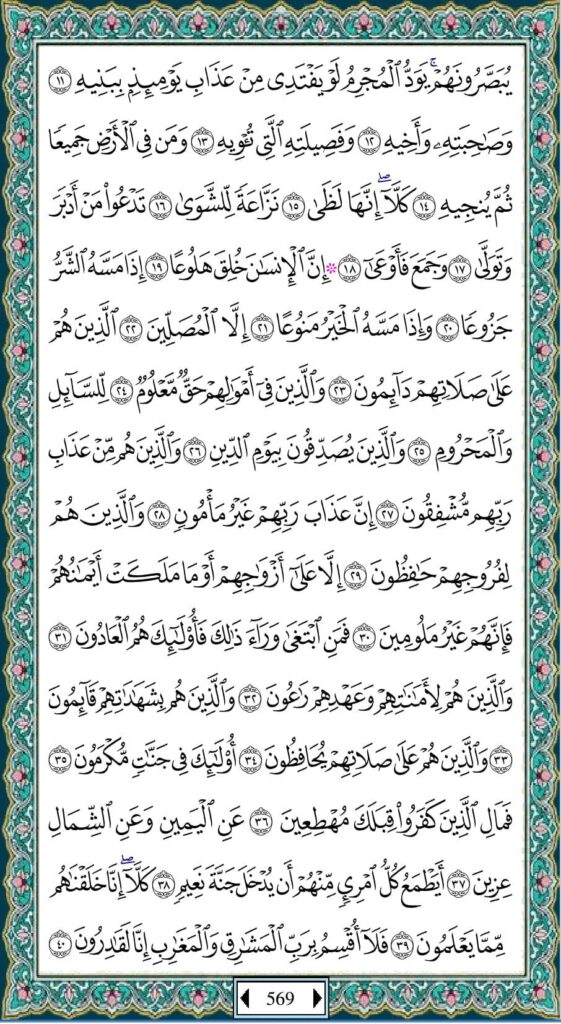 يُبَصَّرُونَهُمْ ۚ يَوَدُّ ٱلْمُجْرِمُ لَوْ يَفْتَدِى مِنْ عَذَابِ يَوْمِئِذٍۭ بِبَنِيهِ ١١
وَصَـٰحِبَتِهِۦ وَأَخِيهِ ١٢ وَفَصِيلَتِهِ ٱلَّتِى تُـْٔوِيهِ ١٣ وَمَن فِى ٱلْأَرْضِ جَمِيعًا
ثُمَّ يُنجِيهِ ١٤ كَلَّآ ۖ إِنَّهَا لَظَىٰ ١٥ نَزَّاعَةً لِّلشَّوَىٰ ١٦ تَدْعُوا۟ مَنْ أَدْبَرَ
وَتَوَلَّىٰ ١٧ وَجَمَعَ فَأَوْعَىٰٓ ١٨ ۞ إِنَّ ٱلْإِنسَـٰنَ خُلِقَ هَلُوعًا ١٩ إِذَا مَسَّهُ ٱلشَّرُّ
جَزُوعًا ٢٠ وَإِذَا مَسَّهُ ٱلْخَيْرُ مَنُوعًا ٢١ إِلَّا ٱلْمُصَلِّينَ ٢٢ ٱلَّذِينَ هُمْ
عَلَىٰ صَلَاتِهِمْ دَآئِمُونَ ٢٣ وَٱلَّذِينَ فِىٓ أَمْوَٰلِهِمْ حَقٌّ مَّعْلُومٌ ٢٤ لِّلسَّآئِلِ
وَٱلْمَحْرُومِ ٢٥ وَٱلَّذِينَ يُصَدِّقُونَ بِيَوْمِ ٱلدِّينِ ٢٦ وَٱلَّذِينَ هُم مِّنْ عَذَابِ
رَبِّهِم مُّشْفِقُونَ ٢٧ إِنَّ عَذَابَ رَبِّهِمْ غَيْرُ مَأْمُونٍ ٢٨ وَٱلَّذِينَ هُمْ
لِفُرُوجِهِمْ حَـٰفِظُونَ ٢٩ إِلَّا عَلَىٰٓ أَزْوَٰجِهِمْ أَوْ مَا مَلَكَتْ أَيْمَـٰنُهُمْ
فَإِنَّهُمْ غَيْرُ مَلُومِينَ ٣٠ فَمَنِ ٱبْتَغَىٰ وَرَآءَ ذَٰلِكَ فَأُو۟لَـٰٓئِكَ هُمُ ٱلْعَادُونَ ٣١
وَٱلَّذِينَ هُمْ لِأَمَـٰنَـٰتِهِمْ وَعَهْدِهِمْ رَٰعُونَ ٣٢ وَٱلَّذِينَ هُم بِشَهَـٰدَٰتِهِمْ قَآئِمُونَ
٣٣ وَٱلَّذِينَ هُمْ عَلَىٰ صَلَاتِهِمْ يُحَافِظُونَ ٣٤ أُو۟لَـٰٓئِكَ فِى جَنَّـٰتٍ مُّكْرَمُونَ ٣٥
فَمَالِ ٱلَّذِينَ كَفَرُوا۟ قِبَلَكَ مُهْطِعِينَ ٣٦ عَنِ ٱلْيَمِينِ وَعَنِ ٱلشِّمَالِ
عِزِينَ ٣٧ أَيَطْمَعُ كُلُّ ٱمْرِئٍ مِّنْهُمْ أَن يُدْخَلَ جَنَّةَ نَعِيمٍ ٣٨ كَلَّآ ۖ إِنَّا خَلَقْنَـٰهُم
مِّمَّا يَعْلَمُونَ ٣٩ فَلَآ أُقْسِمُ بِرَبِّ ٱلْمَشَـٰرِقِ وَٱلْمَغَـٰرِبِ إِنَّا لَقَـٰدِرُونَ ٤٠
569